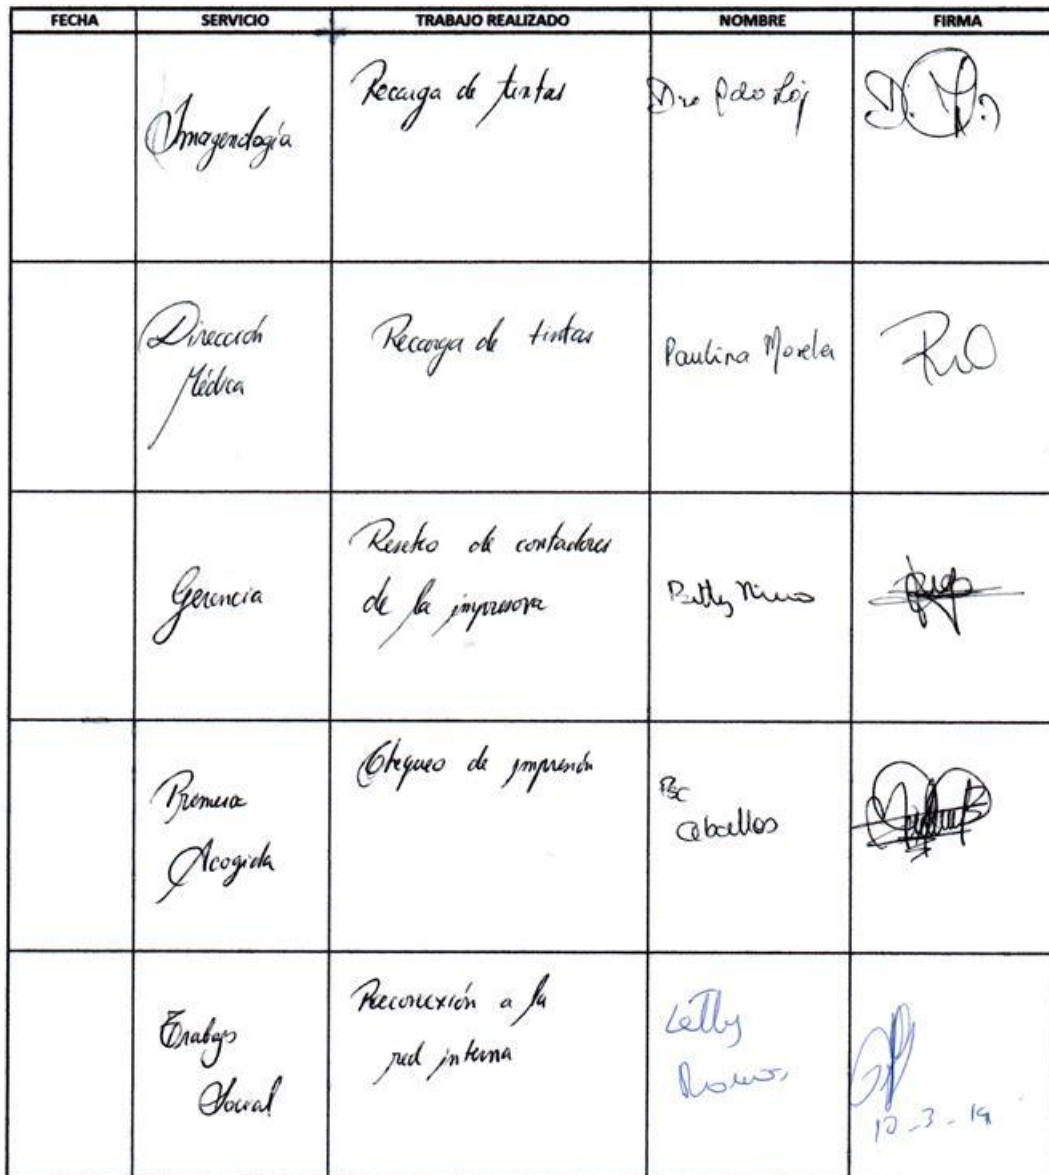 FECHA SERVICIO TRABAJO REALIZADO NOMBRE FIRMA
Imagenología Recarga de tintas
Dirección Médica Recarga de tintas Paulina
Gerencia Reseteo de contadores
de la impresora Betty
Primera Acogida Chequeo de impresión Psc Ceballos
Trabajo Social Reconexión a la
red interna Letty